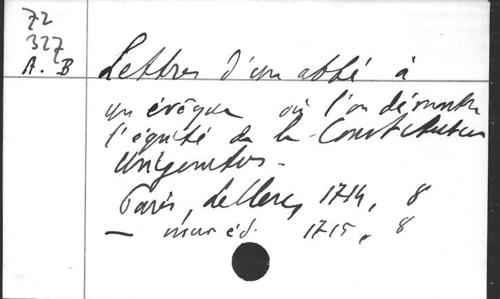 72
327
A. B
Lettres d'un abbé à
un évêque où l'on démontre
l'équité de la Constitution
Unigenitus.
Paris, Leclerc, 1714, 8
— ed. 1715, 8